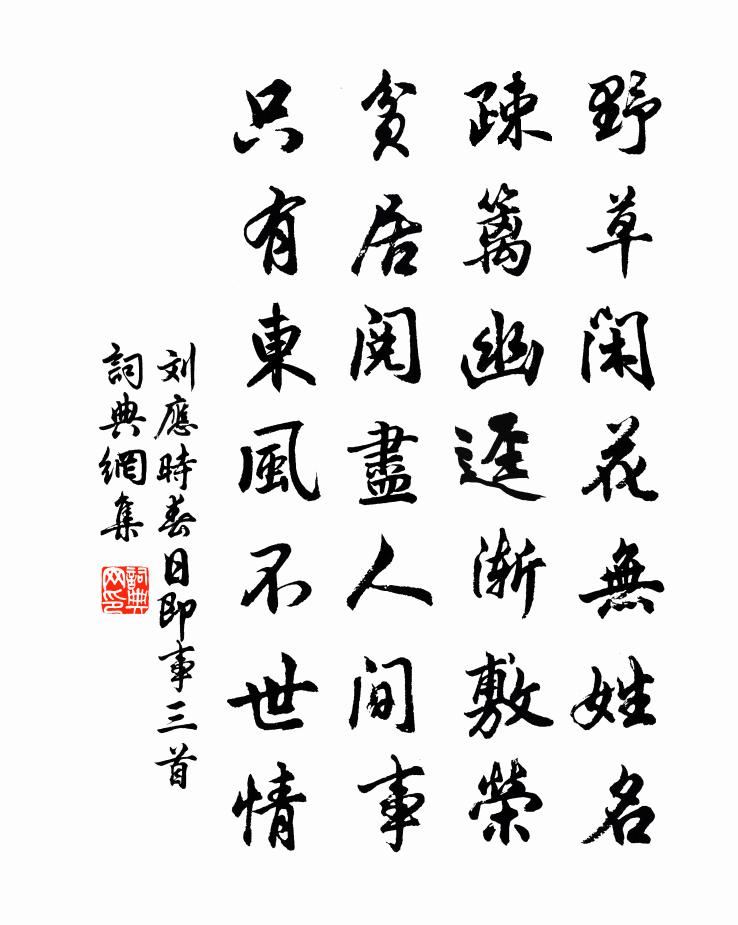 野草閑花無姓名
疎篱幽逕漸敷榮
貧居閱盡人间事
只有東風不世情
刘應時春日即事三首
詞典網集
詞典
网印